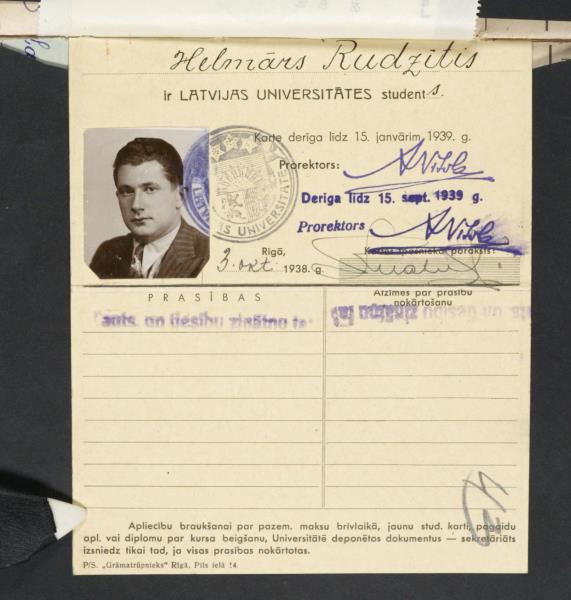 Helmārs Rudzītis
ir LATVIJAS UNIVERSITĀTES students.
Karte derīga līdz 15. janvārim 1939. g.
Prorektors:
Derīga līdz 15. sept. 1939 g.
Prorektors
LATVIJAS UNIVERSITĀTE
Rīgā,
3. okt. 1938. g.
Kartes īpašnieka paraksts:
PRASĪBAS
Atzīmes par prasību
nokārtošanu
un tiesību zinātņu
un tiesību zinātņu
Apliecību braukšanai par pazem. maksu brīvlaikā, jaunu stud. karti, pagaidu
apl. vai diplomu par kursa beigšanu, Universitātē deponētos dokumentus — sekretāriāts
izsniedz tikai tad, ja visas prasības nokārtotas.
P/S. „Grāmatrūpnieks" Rīgā, Pils ielā 14.